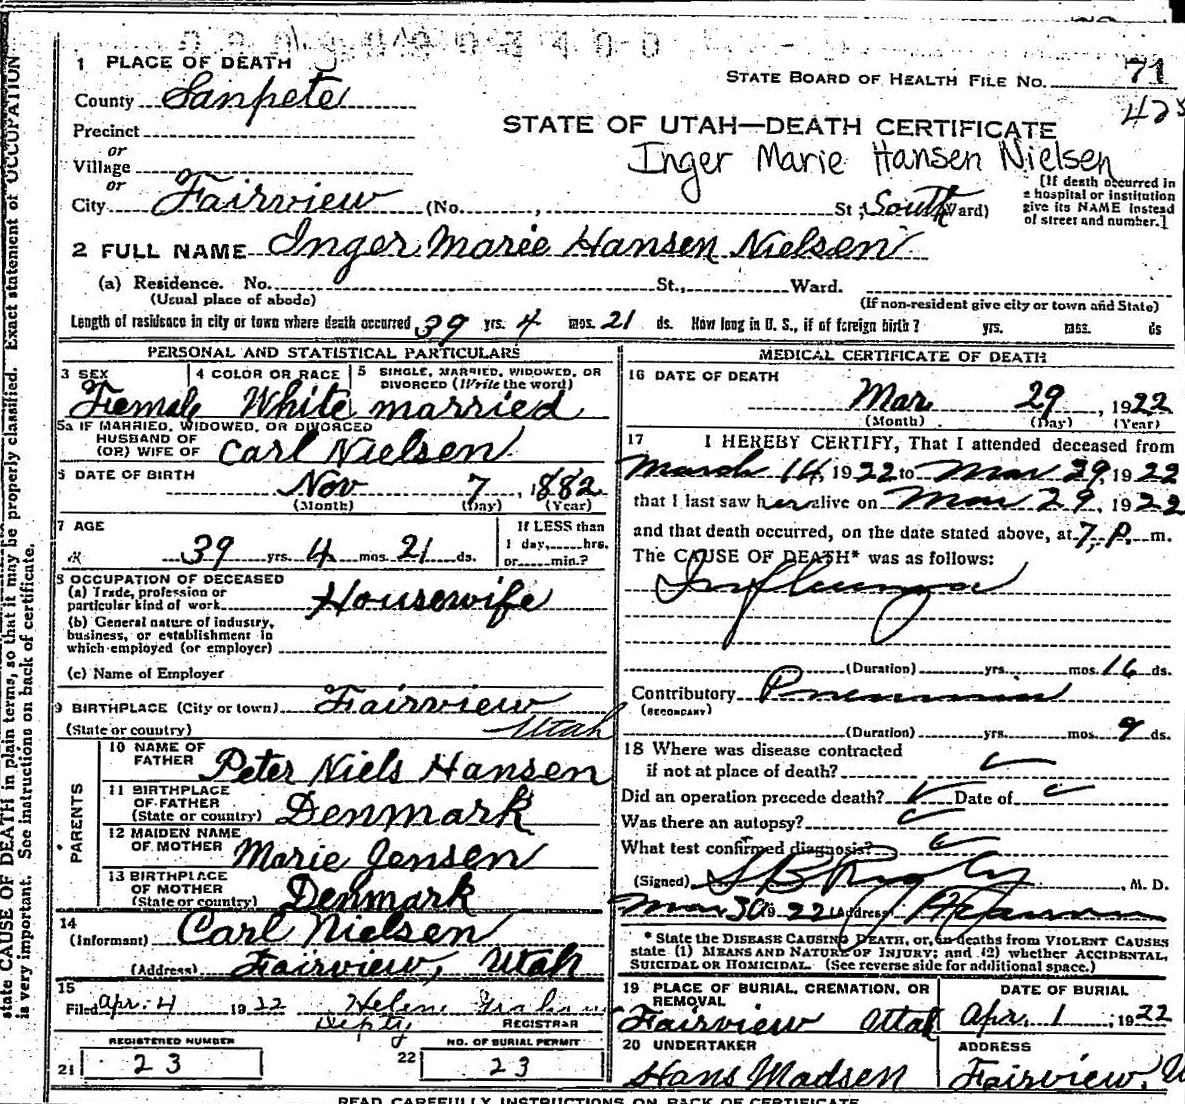 1 PLACE OF DEATH
STATE BOARD OF HEALTH FILE No. 71
County Sanpete
428
Precinct
STATE OF UTAH—DEATH CERTIFICATE
or
Inger Marie Hansen Nielsen
Village
or
City Fairview (No. , St; South Ward)
[If death occurred in a hospital or institution give its NAME instead of street and number.]
2 FULL NAME Inger Marie Hansen Nielsen
(a) Residence. No. St., Ward.
(Usual place of abode) (If non-resident give city or town and State)
Length of residence in city or town where death occurred 39 yrs. 4 mos. 21 ds. How long in U. S., if of foreign birth? yrs. mos. ds
PERSONAL AND STATISTICAL PARTICULARS
3 SEX 4 COLOR OR RACE 5 SINGLE, MARRIED, WIDOWED, OR DIVORCED (Write the word)
Female White married
5a IF MARRIED, WIDOWED, OR DIVORCED
HUSBAND OF
(OR) WIFE OF Carl Nielsen
6 DATE OF BIRTH
Nov 7, 1882
(Month) (Day) (Year)
7 AGE If LESS than
39 yrs. 4 mos. 21 ds. 1 day, hrs.
or min.?
8 OCCUPATION OF DECEASED
(a) Trade, profession or
particular kind of work Housewife
(b) General nature of industry,
business, or establishment in
which employed (or employer)
(c) Name of Employer
9 BIRTHPLACE (City or town) Fairview
(State or country) Utah
PARENTS
10 NAME OF
FATHER Peter Niels Hansen
11 BIRTHPLACE
OF FATHER
(State or country) Denmark
12 MAIDEN NAME
OF MOTHER Marie Jensen
13 BIRTHPLACE
OF MOTHER
(State or country) Denmark
14
(Informant) Carl Nielsen
(Address) Fairview, Utah
15
Filed Apr. 4 1922 Helen
Depty REGISTRAR
REGISTERED NUMBER NO. OF BURIAL PERMIT
21 23 22 23
MEDICAL CERTIFICATE OF DEATH
16 DATE OF DEATH
Mar 29, 1922
(Month) (Day) (Year)
17 I HEREBY CERTIFY, That I attended deceased from
March 14, 1922 to Mar 29, 1922
that I last saw her alive on Mar 29, 1922
and that death occurred, on the date stated above, at 7, P. m.
The CAUSE OF DEATH* was as follows:
Influenza
(Duration) yrs. mos. 16 ds.
Contributory Pneumonia
(SECONDARY)
(Duration) yrs. mos. 9 ds.
18 Where was disease contracted
if not at place of death?
Did an operation precede death? Date of
Was there an autopsy?
What test confirmed diagnosis?
(Signed) , M. D.
Mar 30 1922 (Address)
* State the DISEASE CAUSING DEATH, or, in deaths from VIOLENT CAUSES
state (1) MEANS AND NATURE OF INJURY; and (2) whether ACCIDENTAL,
SUICIDAL OR HOMICIDAL. (See reverse side for additional space.)
19 PLACE OF BURIAL, CREMATION, OR REMOVAL DATE OF BURIAL
Fairview Utah Apr. 1, 1922
20 UNDERTAKER ADDRESS
Hans Madsen Fairview, U
READ CAREFULLY INSTRUCTIONS ON BACK OF CERTIFICATE
state CAUSE OF DEATH in plain terms, so that it may be properly classified. Exact statement of OCCUPATION
is very important. See instructions on back of certificate.